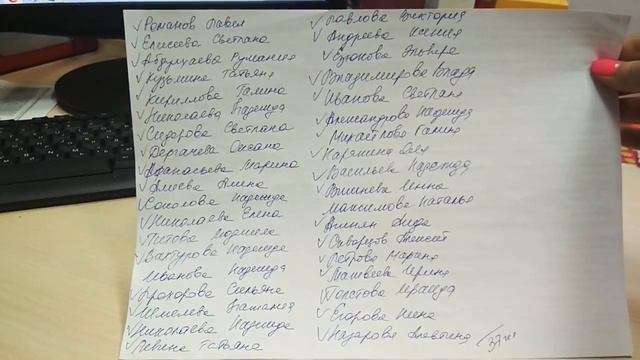 ✓ Романов Павел
✓ Елисеева Светлана
✓ Абдулаева Румания
✓ Кузьмина Татьяна
✓ Кириллова Галина
✓ Николаева Надежда
✓ Сидорова Светлана
✓ Дергачева Оксана
✓ Афанасьева Марина
✓ Алиева Амина
✓ Соколова Надежда
✓ Николаева Елена
✓ Титова
✓ Вахтурова Надежда
Иванова Надежда
✓ Прохорова Татьяна
✓ Шмелева
✓ Николаева Надежда
✓ Левина Татьяна
✓ Павлова Виктория
✓ Андреева Ксения
✓ Эльвира
✓ Владимирова Влада
✓ Иванова Светлана
✓ Александрова Надежда
✓ Михайлова Галина
✓ Карякина
✓ Васильева Надежда
✓ Вишнева Жанна
Максимова Наталья
✓ Аида
✓ Скворцов Алексей
✓ Петрова Марина
✓ Матвеева Ирина
Толстова Ираида
✓ Егорова Инна
✓ Назарова Алевтина
37 чел